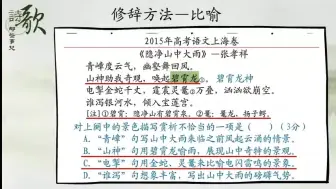 歌
修辞方法—比喻
2015年高考语文上海卷
《隐净山中大雨》—张孝祥
青嶂度云气，幽壑舞回风。
山神助我奇观，唤起碧霄龙①。碧霄龙神
电掣金蛇千丈，雷震灵鼍②万叠，汹汹欲崩空。
谁泻银河水，倾入宝莲宫。
[注]①碧霄：隐净山有碧霄泉。②鼍：鼍龙，扬子鳄。
对上阕中的景色描写赏析不恰当的一项是（ ）（3分）
A.“青嶂”句写山中大雨来临之前风起云涌的情景。
B.“山神”句用碧霄龙喻雨，展现山中奇特的景观。
C.“电掣”句用金蛇、灵鼍来比喻电闪雷鸣的景象。
D.“谁泻”句想象丰富，写出山中大雨的磅礴气势。